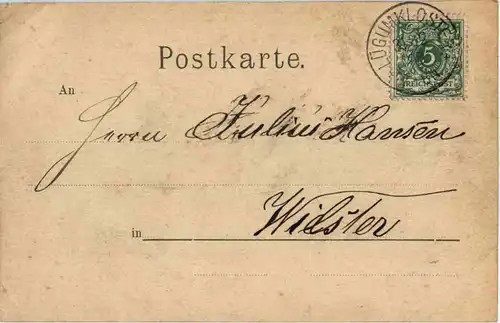 LÜGUMKLOSTER
5
REICHSPOST
Postkarte.
An
Herrn Julius Hansen
in Wilster